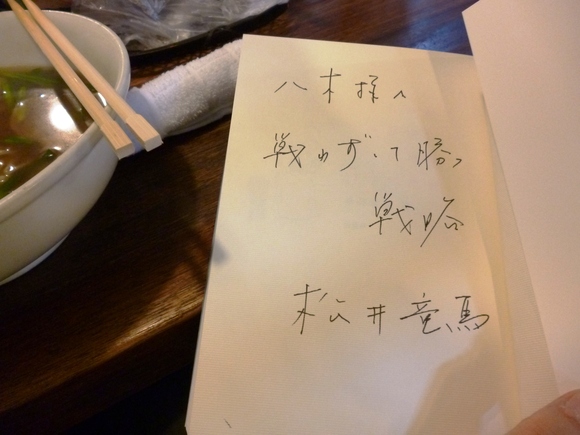 八木様へ
戦わずして勝つ
戦略
松井竜馬